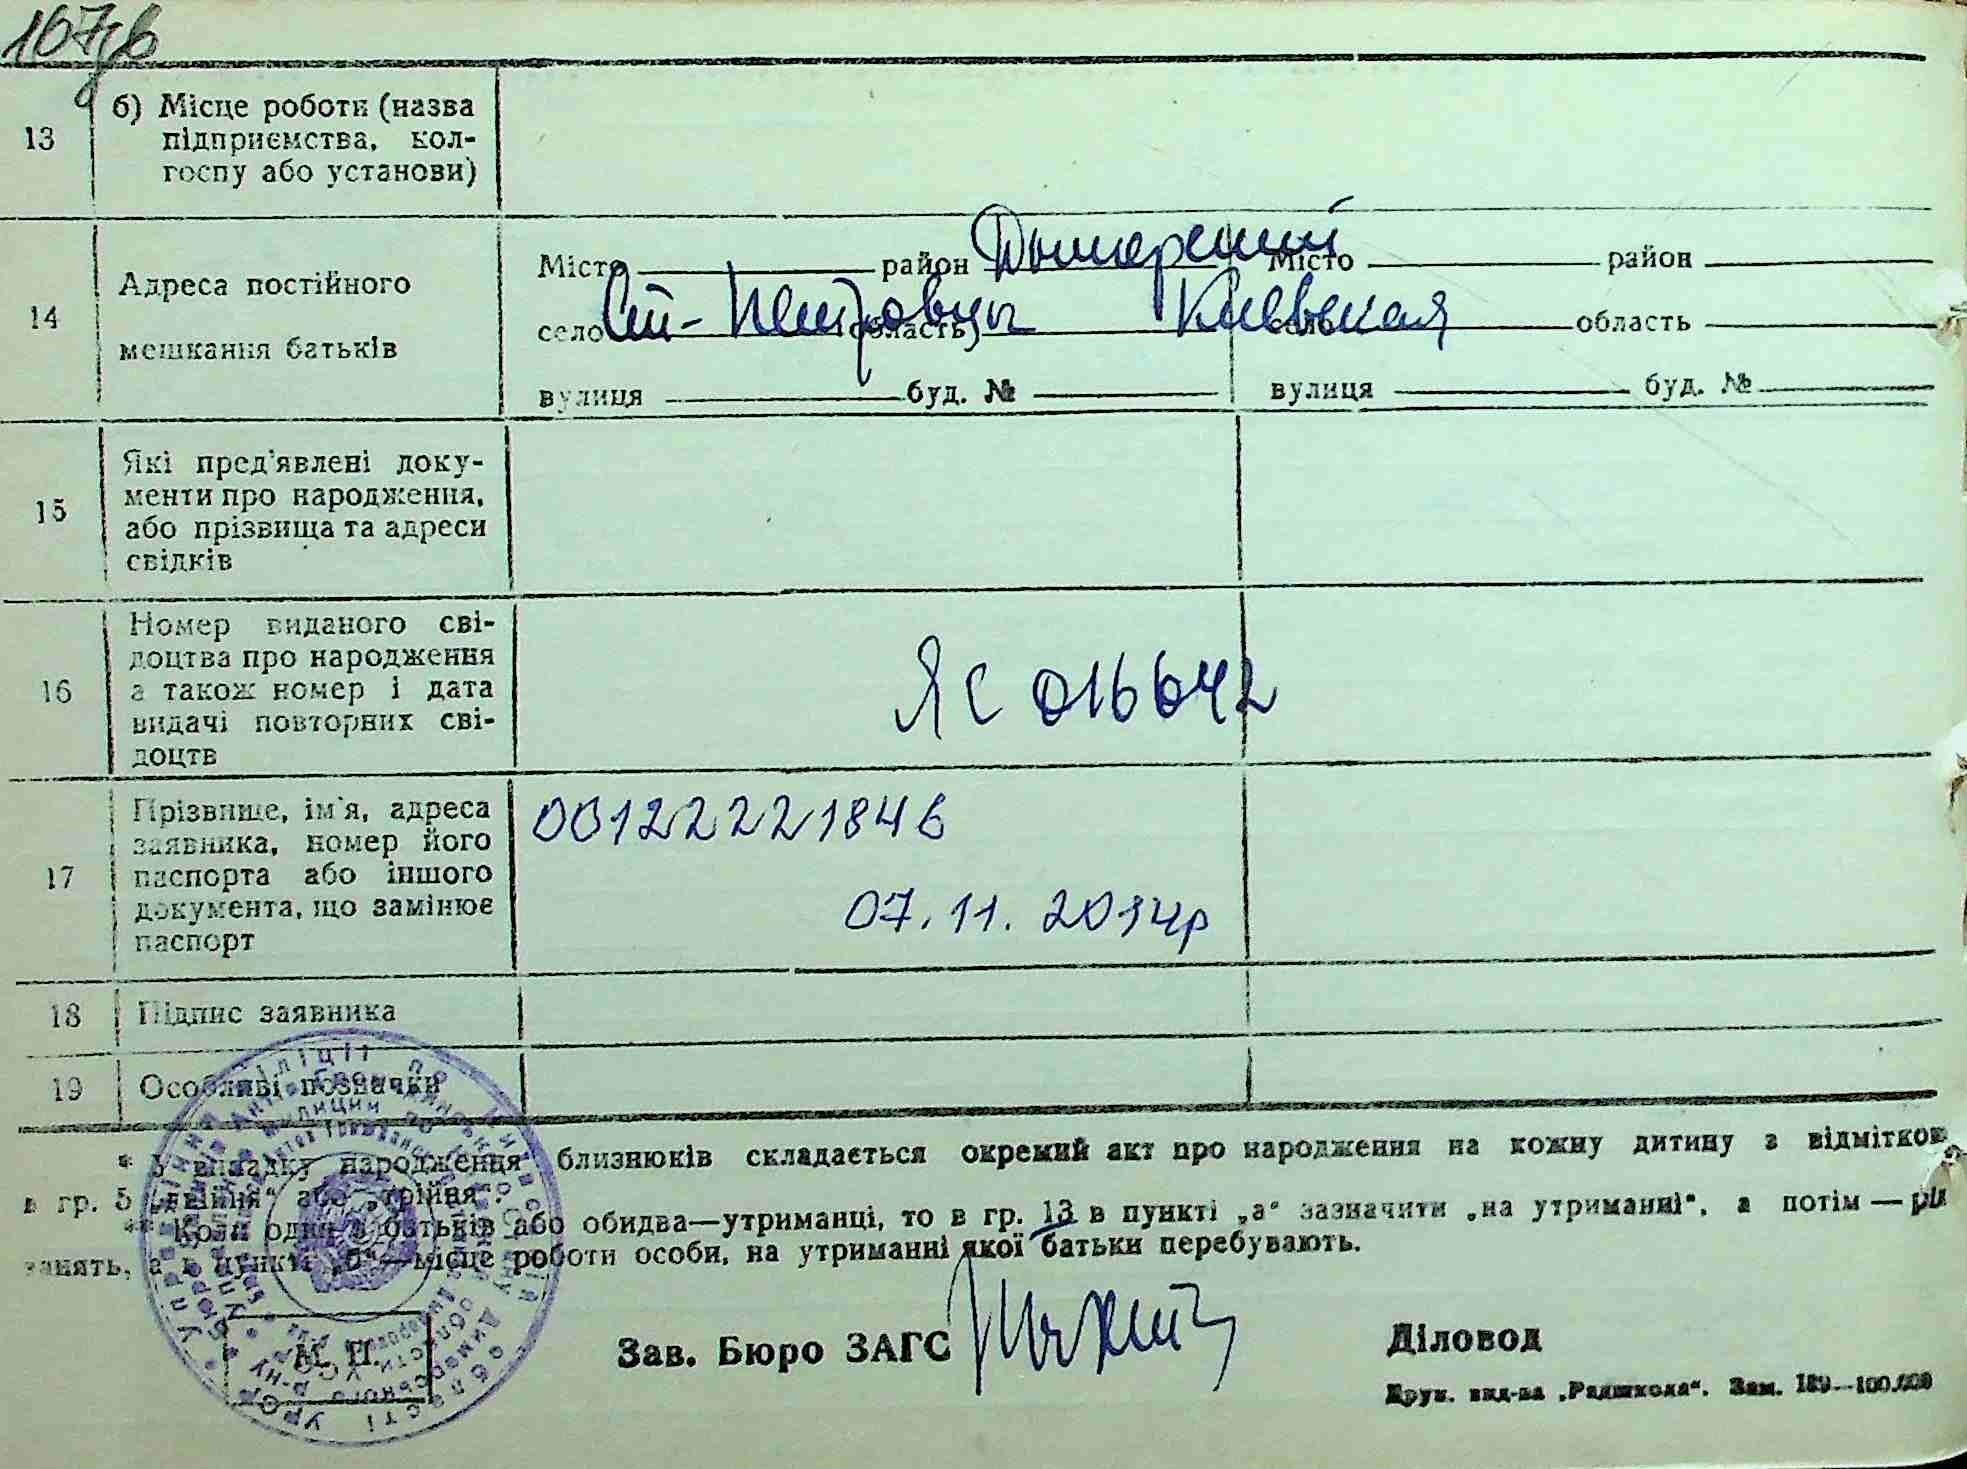 13
б) Місце роботи (назва
підприємства, кол-
госпу або установи)
14
Адреса постійного
мешкання батьків
Місто район Дымерский
село Ст-Петровцы область Киевская
вулиця буд. №
Місто район
область
вулиця буд. №
15
Які пред'явлені доку-
менти про народження,
або прізвища та адреси
свідків
16
Номер виданого сві-
доцтва про народження
а також номер і дата
видачі повторних сві-
доцтв
ЯС 016642
17
Прізвище, ім'я, адреса
заявника, номер його
паспорта або іншого
документа, що замінює
паспорт
00122221846
07.11.2014р
18
Підпис заявника
19
Особливі позначки
* У випадку народження близнюків складається окремий акт про народження на кожну дитину з відміткою
в гр. 5 „двійня“ або „трійня“.
** Коли один з батьків або обидва—утриманці, то в гр. 13 в пункті „а“ зазначити „на утриманні“, а потім —
занять, а в пункті „б“—місце роботи особи, на утриманні якої батьки перебувають.
М. П.
Зав. Бюро ЗАГС
Діловод
Друк. вид-ва „Радшкола“. Зам. 189—100.000